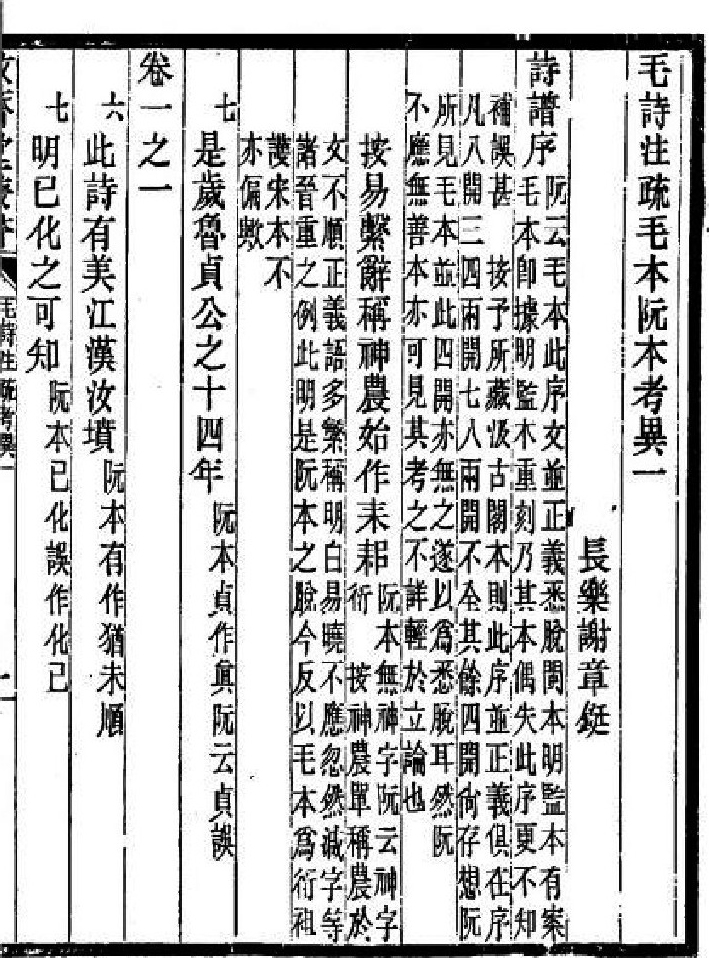 毛詩注疏毛本阮本考異一
長樂謝章鋌
詩譜序
阮云毛本此序文並正義悉脫閩本明監本有案
毛本卽據明監本重刻乃其本偶失此序更不知
補誤甚 按予所藏汲古閣本則此序並正義俱在序
凡八開三四兩開七八兩開不全其餘四開尙存想阮
所見毛本並此四開亦無之遂以爲悉脫耳然阮
不應無善本亦可見其考之不詳輕於立論也
按易繫辭稱神農始作耒耜
阮本無神字阮云神字
衍 按神農單稱農於
文不順正義語多繁稱明白易曉不應忽然減字等
諸晉重之例此明是阮本之脫今反以毛本爲衍祖
護宋本不
亦偏歟
七 是歲魯貞公之十四年
阮本貞作眞阮云貞誤
卷一之一
六 此詩有美江漢汝墳
阮本有作猶未順
七 明已化之可知
阮本已化誤作化已
毛詩注疏考異一